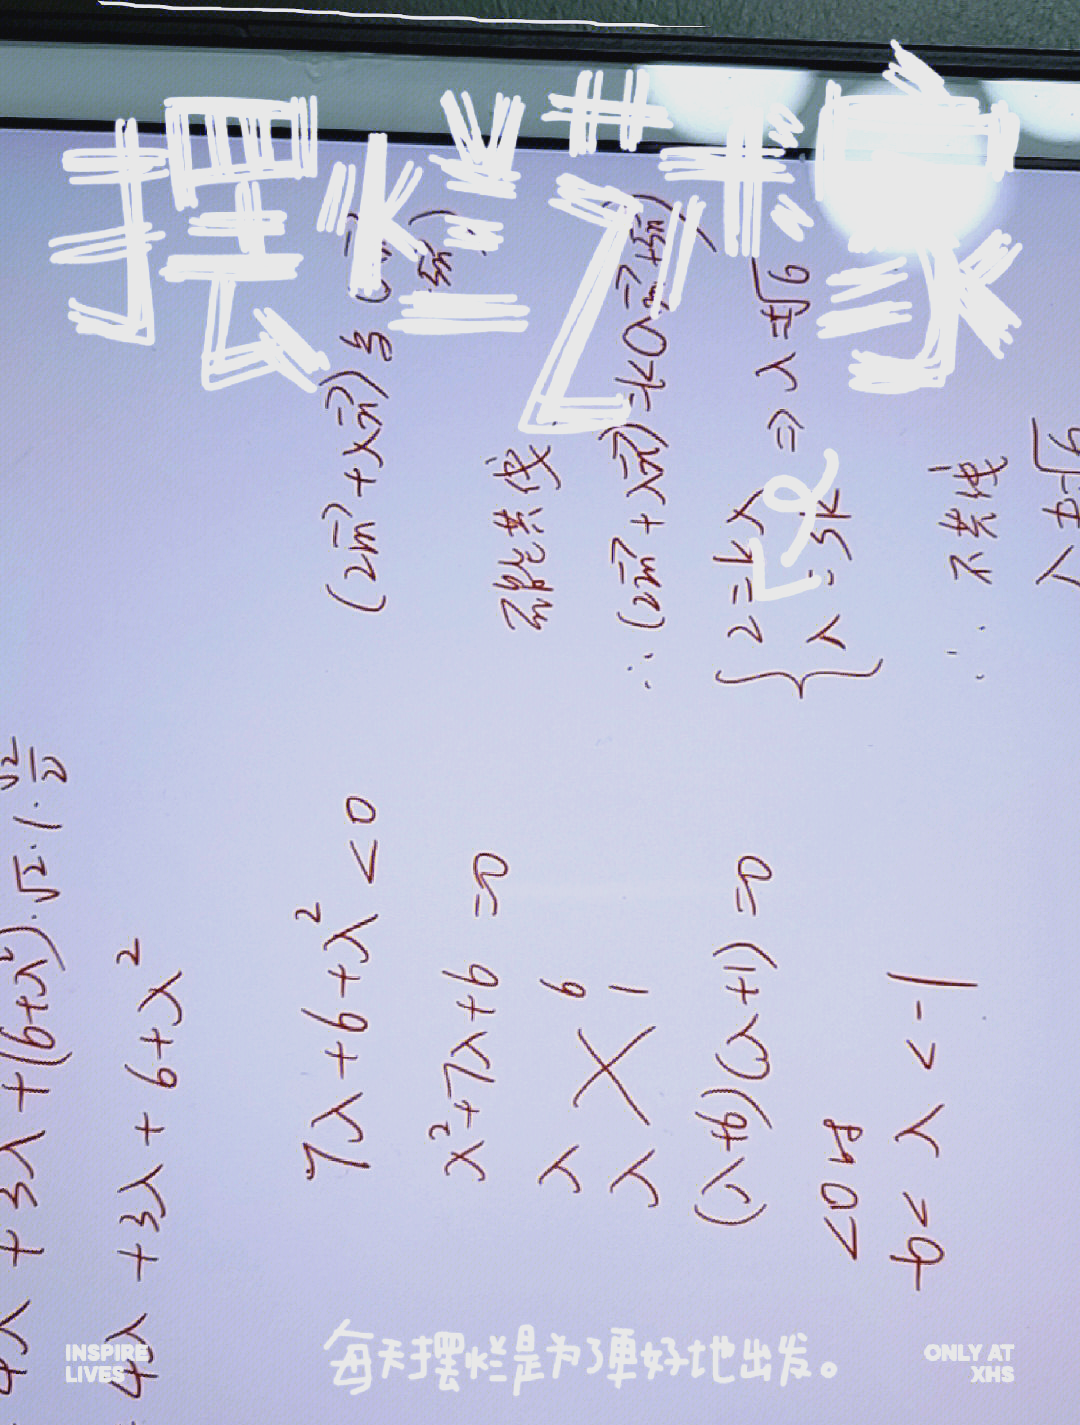 摆烂艺术家
= 4λ + 3λ + (6+λ²)·√2·1·√2/2
= 4λ + 3λ + 6 + λ²
7λ + 6 + λ² < 0
λ² + 7λ + 6 = 0
λ 6
λ 1
(λ+6)(λ+1) = 0
<0 时
-6 < λ < -1
(2m + λn) 与
不能共线
∴ (2m + λn) = k(λm + 3n)
2 = kλ
λ = 3k
⇒ λ = ±√6
∴ 不共线
λ ±√6
每天摆烂是为了更好地出发。
INSPIRE
LIVES
ONLY AT
XHS